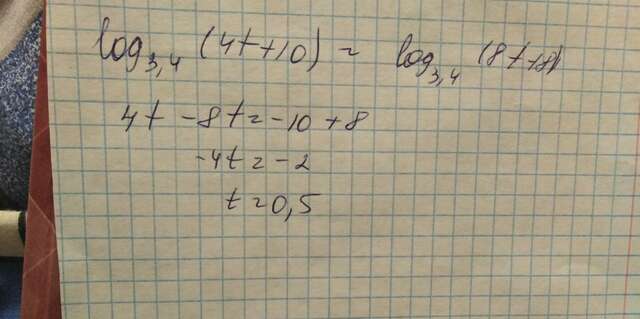 log₃,₄ (4t+10) = log₃,₄ (8t+8)
4t - 8t = -10 + 8
-4t = -2
t = 0,5